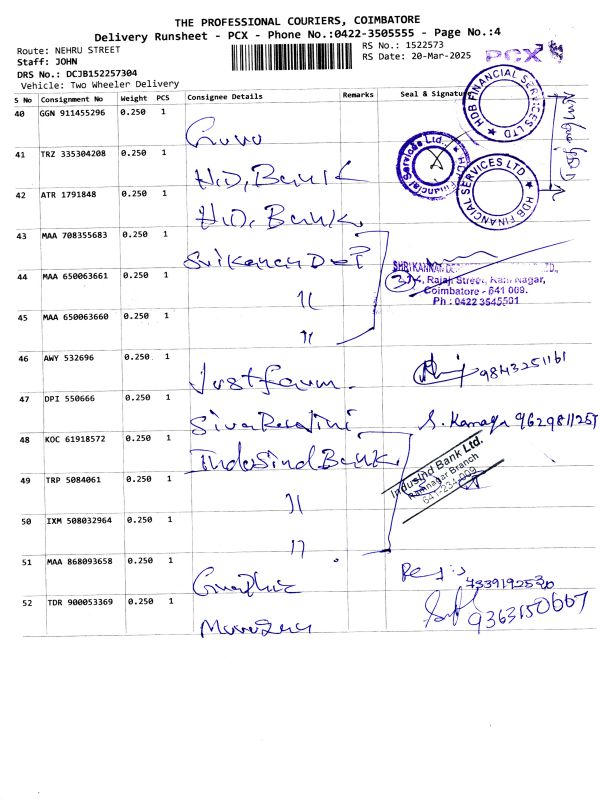 THE PROFESSIONAL COURIERS, COIMBATORE
Delivery Runsheet - PCX - Phone No.:0422-3505555 - Page No.:4
Route: NEHRU STREET
RS No.: 1522573
Staff: JOHN
RS Date: 20-Mar-2025
PCX
DRS No.: DCJB152257304
Vehicle: Two Wheeler Delivery
S No Consignment No Weight PCS Consignee Details Remarks Seal & Signature
40 GGN 911455296 0.250 1
HDB FINANCIAL SERVICES LTD
41 TRZ 335304208 0.250 1 H.D, Bank
Financial Services Ltd.
HDB FINANCIAL SERVICES LTD
42 ATR 1791848 0.250 1 H.D, Bank
43 MAA 708355683 0.250 1
44 MAA 650063661 0.250 1 "
Rajaji Street, Ram Nagar,
Coimbatore - 641 009.
Ph : 0422 3545501
45 MAA 650063660 0.250 1 "
46 AWY 532696 0.250 1 9843251161
47 DPI 550666 0.250 1 9629811257
48 KOC 61918572 0.250 1 IndusInd Bank
IndusInd Bank Ltd.
Ramnagar Branch
49 TRP 5084061 0.250 1 "
50 IXM 508032964 0.250 1 "
51 MAA 868093658 0.250 1
52 TDR 900053369 0.250 1 9363150667